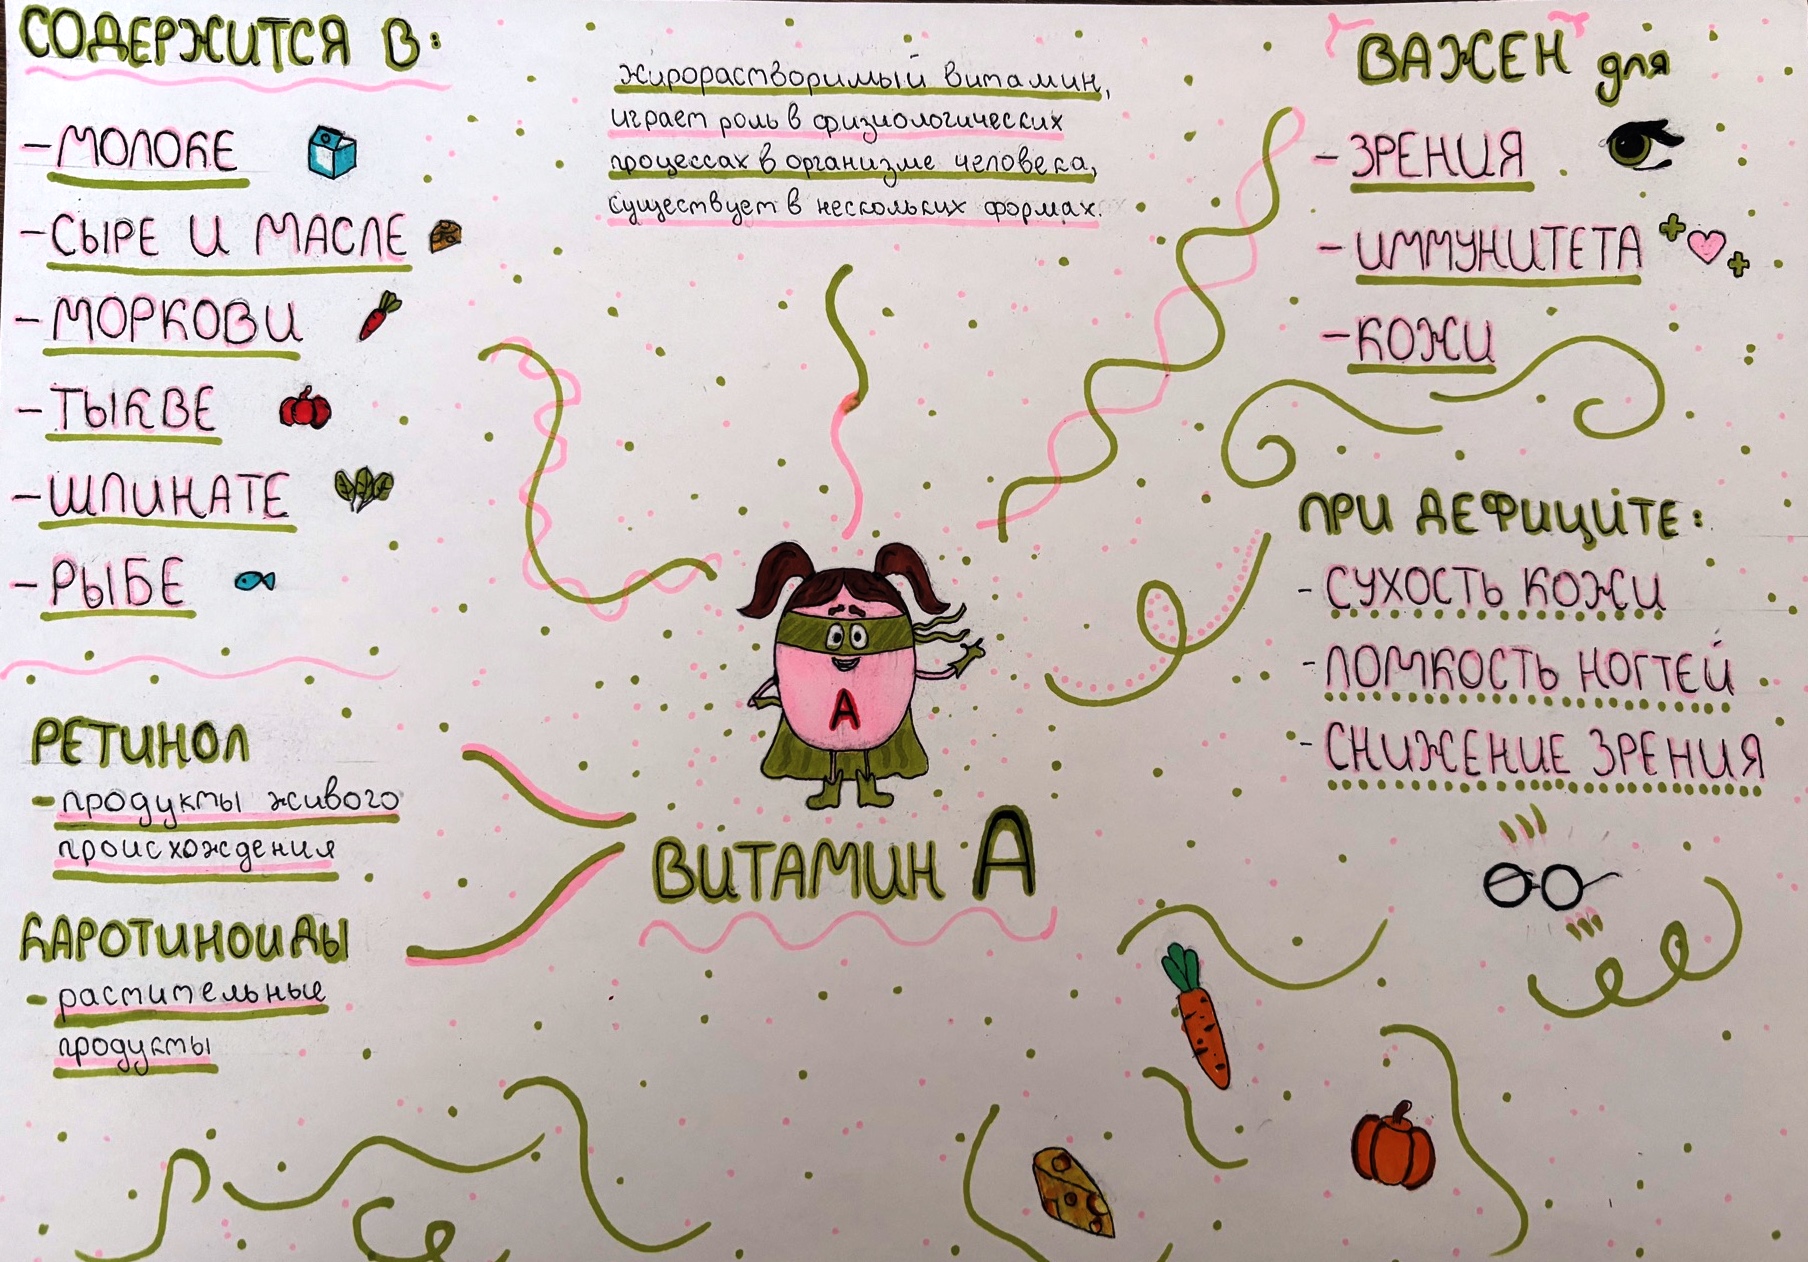 СОДЕРЖИТСЯ В:
- МОЛОКЕ
- СЫРЕ И МАСЛЕ
- МОРКОВИ
- ТЫКВЕ
- ШПИНАТЕ
- РЫБЕ
жирорастворимый витамин,
играет роль в физиологических
процессах в организме человека,
существует в нескольких формах.
ВАЖЕН для
- ЗРЕНИЯ
- ИММУНИТЕТА
- КОЖИ
ПРИ ДЕФИЦИТЕ:
- СУХОСТЬ КОЖИ
- ЛОМКОСТЬ НОГТЕЙ
- СНИЖЕНИЕ ЗРЕНИЯ
РЕТИНОЛ
- продукты живого
происхождения
КАРОТИНОИДЫ
- растительные
продукты
А
ВИТАМИН А